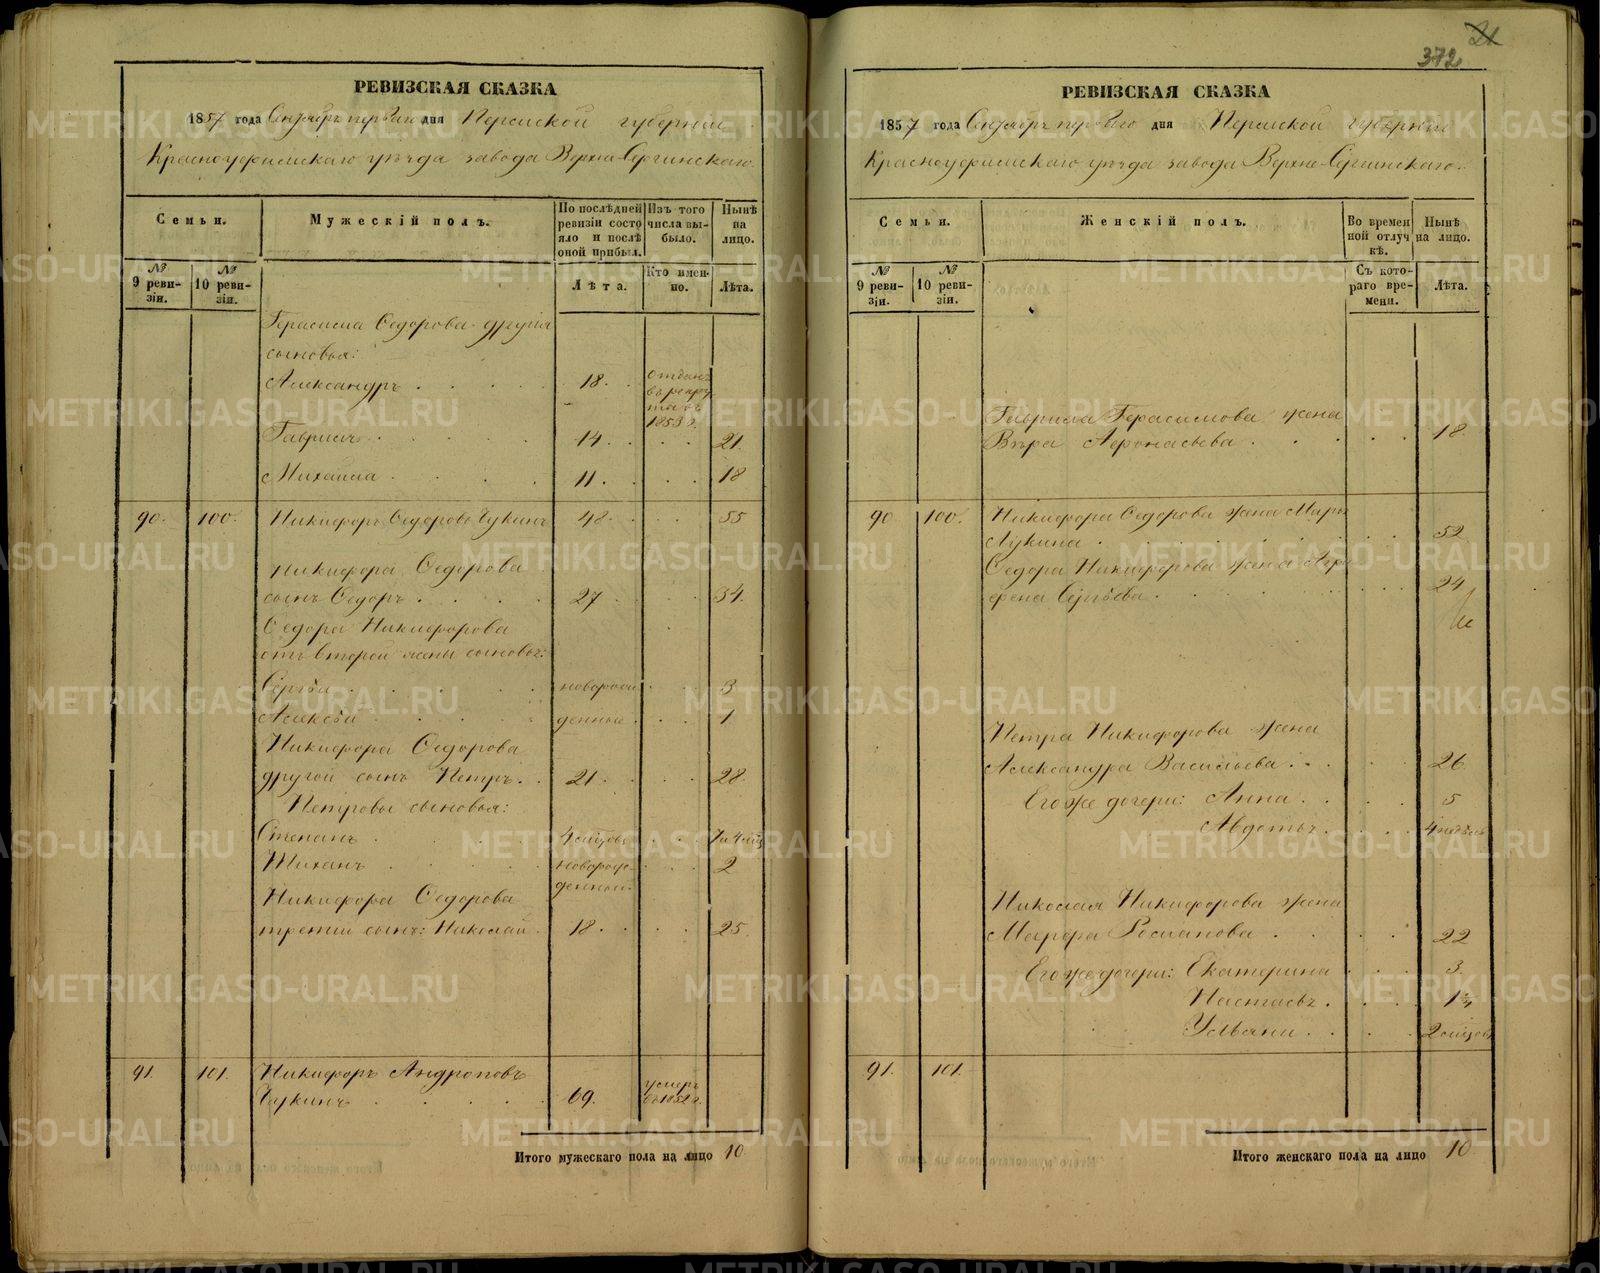 21
372
РЕВИЗСКАЯ СКАЗКА
1857 года Сентября первого дня Пермской губернии
Красноуфимскаго уезда завода Верхне-Сергинскаго.
Семьи.
Мужескій полъ.
По послѣдней ревизіи состояло и послѣ оной прибыл.
Изъ того числа выбыло.
Нынѣ на лицо.
№ 9 ревизіи.
№ 10 ревизіи.
Лѣта.
Кто именно.
Лѣта.
Герасима Федорова другия
сыновья:
Александръ 18. отданъ въ рекруты въ 1853 г.
Гаврилъ 14 21.
Михайла 11. 18
90. 100. Никифоръ Федоровъ Чукинъ 48 55
Никифора Федорова
сынъ Федоръ 27 34.
Федора Никифорова
отъ второй жены сыновья:
Сергѣй новорож 3
Алексѣй денные 1
Никифора Федорова
другой сынъ Петръ. 21. 28.
Петровы сыновья:
Степанъ 4 месяцовъ 7 и 4 мца
Тиханъ новорож-денный 2
Никифора Федорова
третій сынъ: Николай. 18. 25.
91. 101. Никифоръ Андроновъ
Чукинъ 69. умеръ въ 1852 г.
Итого мужескаго пола на лицо 10
РЕВИЗСКАЯ СКАЗКА
1857 года Сентября первого дня Пермской губернии
Красноуфимскаго уезда завода Верхне-Сергинскаго.
Семьи.
Женскій полъ.
Во временной отлучкѣ.
Нынѣ на лицо.
№ 9 ревизіи.
№ 10 ревизіи.
Съ котораго времени.
Лѣта.
Гаврила Герасимова жена
Вѣра Афонасьева 18.
90 100. Никифора Федорова жена Марья
Лукина 52
Федора Никифорова жена
Сергѣева 24
Петра Никифорова жена
Александра Васильева 26
Его же дочери: Анна 5
Авдотья 4 недѣль
Николая Никифорова жена
Марфа Романова 22
Его же дочери: Екатерина 3.
Настасья 1
Ульяна 2 месяцовъ
91. 101.
Итого женскаго пола на лицо 10
METRIKI.GASO-URAL.RU